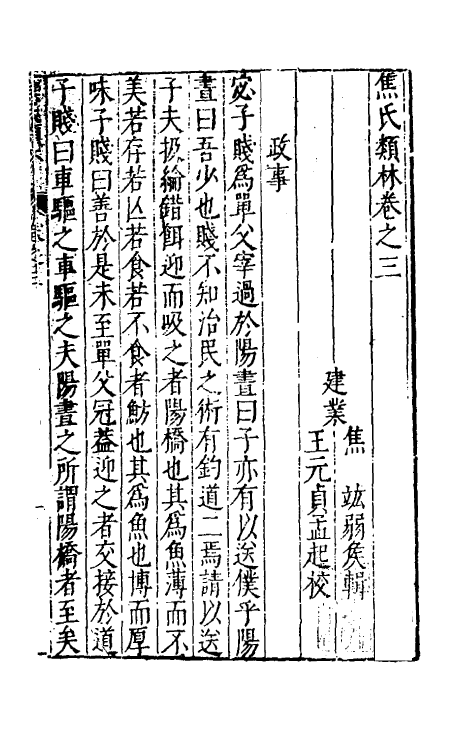 焦氏類林卷之三
焦竑弱侯輯
建業
王元貞孟起校
政事
宓子賤爲單父宰過於陽晝曰子亦有以送僕乎陽
晝曰吾少也賤不知治民之術有釣道二焉請以送
子夫扱綸錯餌迎而吸之者陽橋也其爲魚薄而不
美若存若亾若食若不食者魴也其爲魚也博而厚
味子賤曰善於是未至單父冠葢迎之者交接於道
子賤曰車驅之車驅之夫陽晝之所謂陽橋者至矣